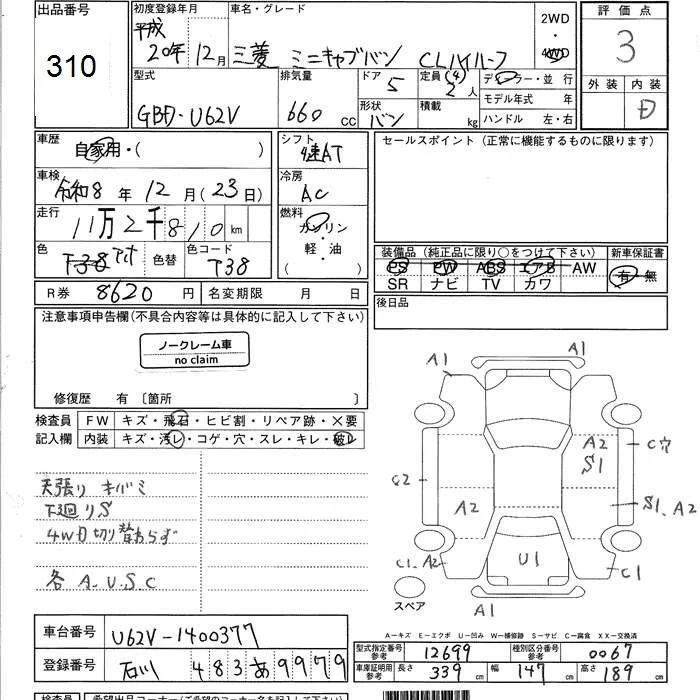 出品番号
310
初度登録年月
平成
20年12月
車名・グレード
三菱 ミニキャブバン CLハイルーフ
2WD
4WD
評価点
3
外装 内装
D
型式
GBD-U62V
排気量
660 cc
ドア
5
形状
バン
定員 (4)
2人
積載
kg
ディーラー・並行
モデル年式 年
ハンドル 左・右
車歴
自家用・( )
車検
令和8年12月(23日)
走行
11万2千810km
色
T38 アオ
色替
色コード
T38
シフト
4速AT
冷房
AC
燃料
ガソリン
・
軽・油
( )
セールスポイント(正常に機能するものに限ります)
装備品(純正品に限り○をつけて下さい)
PS PW ABS エアB AW
SR ナビ TV カワ
新車保証書
有・無
R券 8620円
名変期限 月 日
後日品
注意事項申告欄(不具合内容等は具体的に記入して下さい)
ノークレーム車
no claim
修復歴 有〔箇所 〕
検査員
記入欄
FW キズ・飛石・ヒビ割・リペア跡・×要
内装 キズ・汚レ・コゲ・穴・スレ・キレ・破レ
天張り キバミ
下廻りS
4WD切り替わらず
各 A.U.S.C
A1
A1
A2
S1
C穴
C2
A2
S1、A2
C1、A2
U1
C1
A1
スペア
A-キズ E-エクボ U-凹み W-補修跡 S-サビ C-腐食 XX-交換済
車台番号
U62V-1400377
登録番号
石川 483あ9979
型式指定番号
参考
12699
種別区分番号
参考
0067
車庫証明用
参考
長さ 339cm
幅 147cm
高さ 189cm
検査員
希望出品コーナー